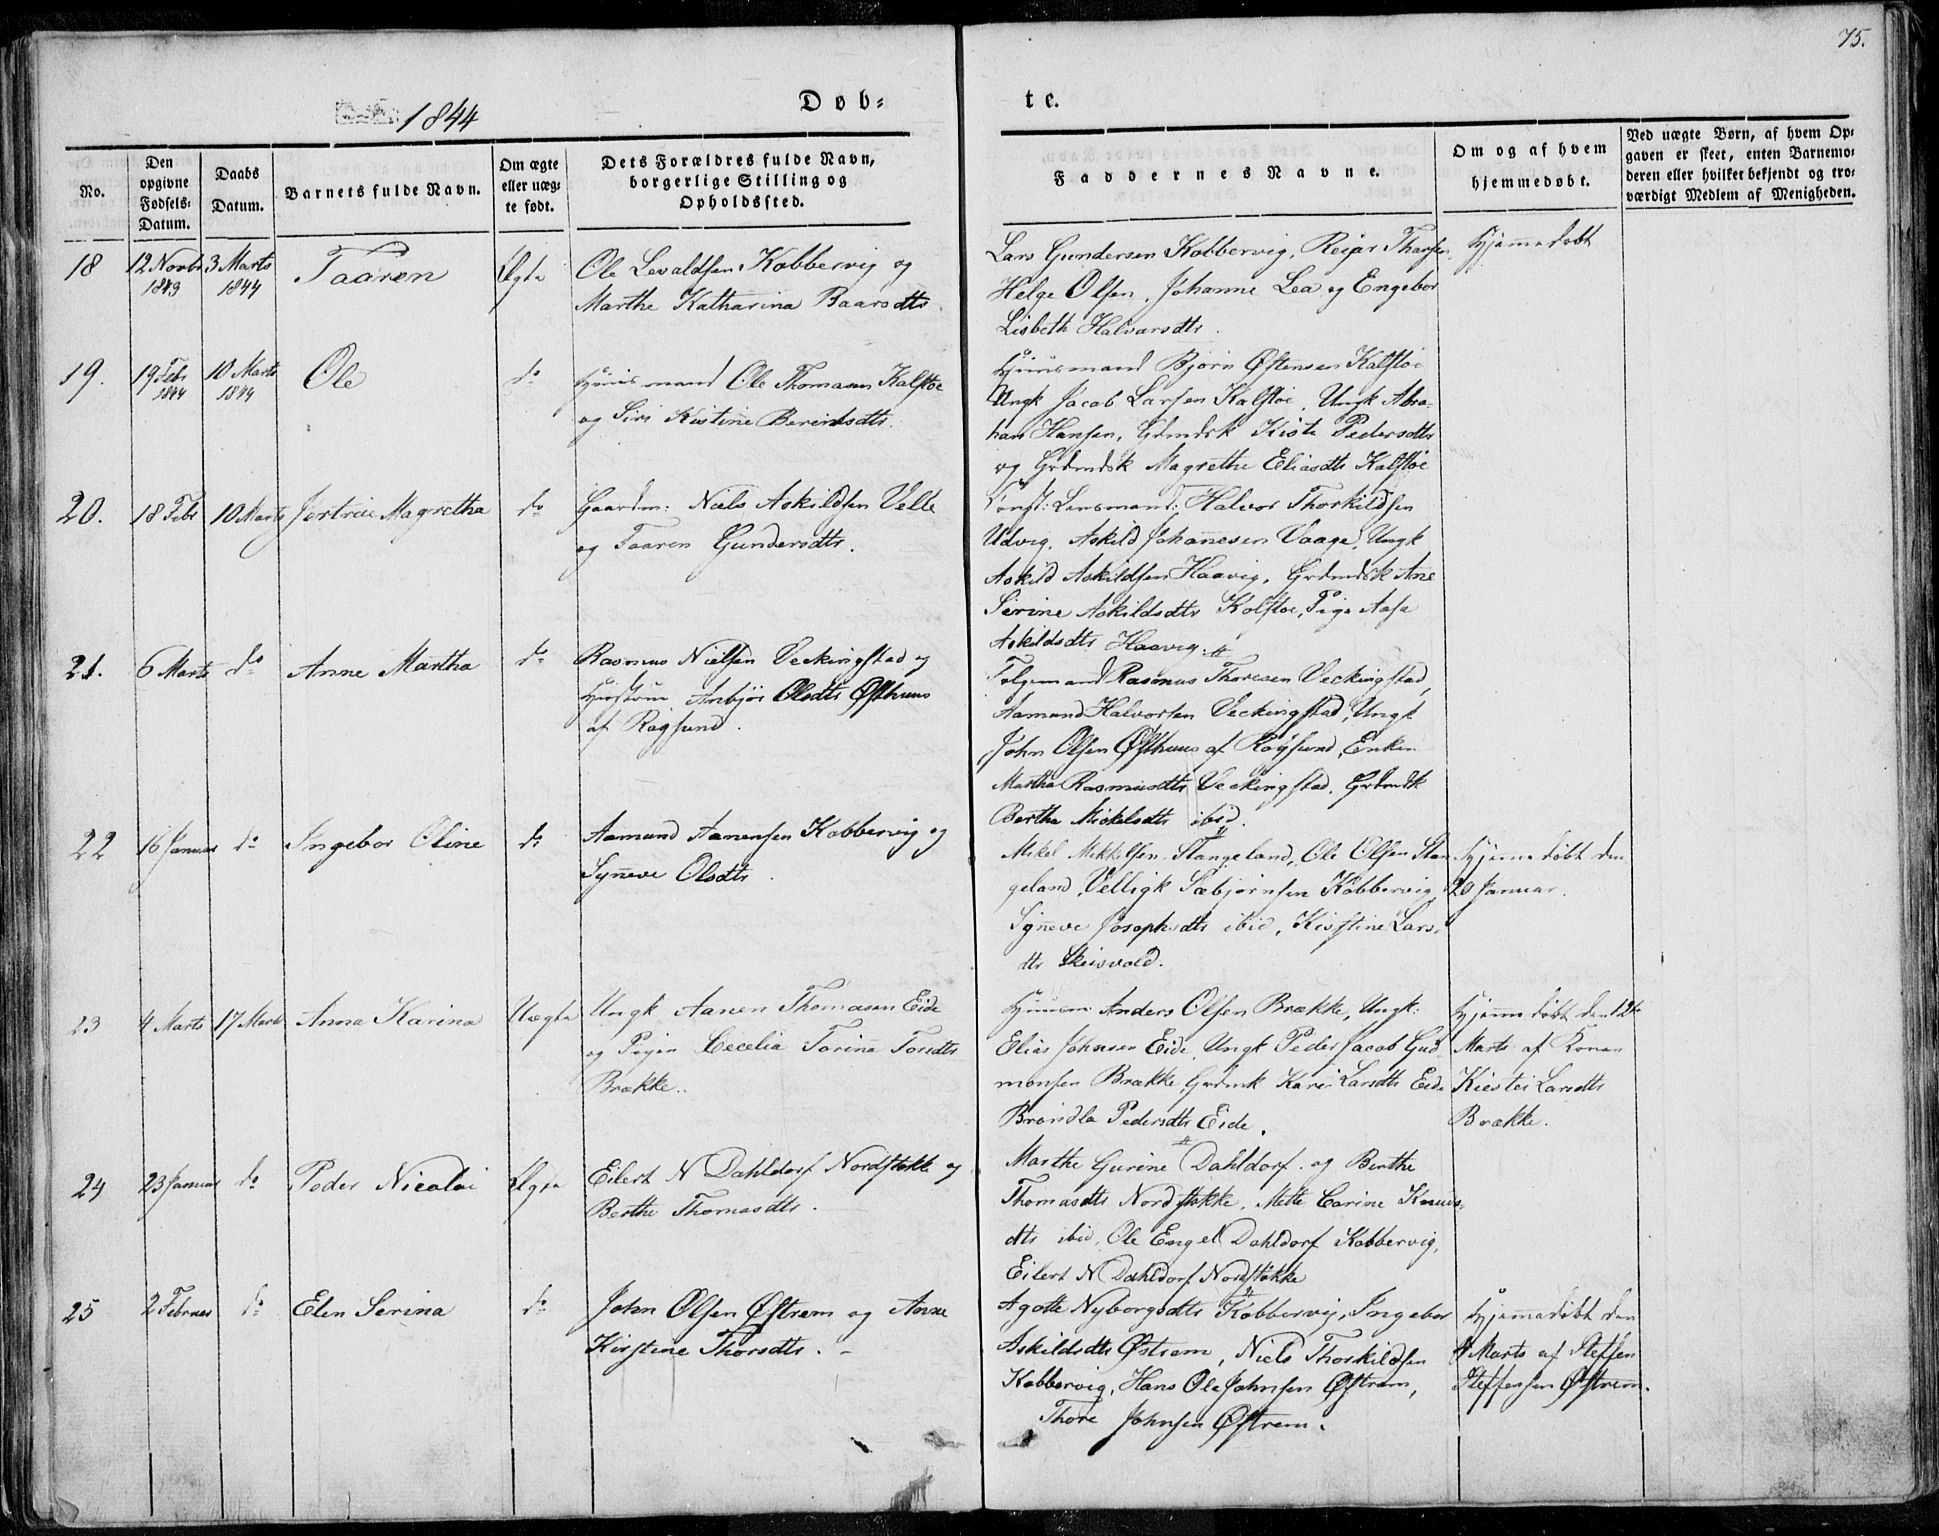 75.
Døb-
te.
1844
No.
Den opgivne Fødsels-Datum.
Daabs Datum.
Barnets fulde Navn.
Om ægte eller uæg-te født.
Dets Forældres fulde Navn, borgerlige Stilling og Opholdssted.
Faddernes Navne.
Om og af hvem hjemmedøbt.
Ved uægte Børn, af hvem Op-gaven er skeet, enten Barnemo-deren eller hvilket bekjendt og tro-værdigt Medlem af Menigheden.
18 12 Novbr 1843 3 Marts 1844 Taaren Ægte
Ole Levaldsen Kobbervig og
Marthe Katharina Baarsdtr
Lars Gundersen Kobbervig, Reiar Tharsen
Helge Olsen, Johanne Lea og Engebor
Lisbeth Halvarsdtr.
Hjemmedøbt
19. 19 Febr 1844 10 Marts 1844 Ole do
Huusmand Ole Thomasen Kalstøe
og Siri Kistine Berentsdtr.
Huusmand Bjørn Østensen Kalstøe
Ungk Jacob Larsen Kalstøe, Ungk Abra-
ham Hansen, Grdmdsk Kiste Pedersdtr
og Grdmdsk Magrethe Eliasdtr Kalstøe
20. 18 Febr 10 Marts Jertrue Magretha do
Gaardm: Niels Askildsen Velle
og Taaren Gundersdtr.
Const: Lensmand: Halvor Thorkildsen
Udvig, Askild Johannesen Vaage, Ungk
Askild Askildsen Haavig, Grdmdsk Ane
Serine Askildsdtr Kolstøe, Pige Aasa
Askildsdtr Haavig.
21. 6 Marts do Anne Martha do
Rasmus Nielsen Veckingstad og
Hustrue Anbjør Olsdtr Østhuus
af Røgsund.
Følgemand Rasmus Thoresen Veckingstad,
Aamund Halvorsen Veckingstad, Ungk
John Olsen Østhuus af Røgsund, Enken
Martha Rasmusdtr Veckingstad, Grdmdsk
Berthe Mickelsdtr ibid.
22 16 Januar do Ingebor Oline do
Aamund Aanensen Kobbervig og
Synneve Olsdtr.
Mikel Mikkelsen Stangeland, Ole Olsen Stan
geland, Velligk Sæbjørnsen Kobbervig
Signeve Josephsdtr ibid, Kistine Lars-
dtr Skeisvold.
Hjemmedøbt den
20 Januar.
23 4 Marts 17 Marts Anna Karina Uægte
Ungk Aanen Thomasen Eide
og Pigen Cecelia Torina Torsdtr
Brække.
Huusm Anders Olsen Brække, Ungk:
Elias Johnsen Eide, Ungk Peder Jacob Gud
monsen Brække, Grdmk Kari Larsdtr Eide
Brøndla Pedersdtr Eide.
Hjemmedøbt den 12te
Marts af Konen
Kiesten Larsdtr
Brække.
24 23 Januar do Peder Nicolai Ægte
Eilert N Dahldorf Nordstokke og
Berthe Thomasdtr.
Marthe Gurine Dahldorf og Berthe
Thomasdtr Nordstokke, Mette Carine Knuds-
dtr ibid, Ole Engel Dahldorf Kobbervig,
Eilert N Dahldorf Nordstokke
25 2 Februar do Elen Serina do
John Olsen Østrem og Anne
Kirstine Thorsdtr.
Agotte Nyborgsdtr Kobbervig, Ingebor
Askildsdtr Østrem, Niels Thorkildsen
Kobbervig, Hans Ole Johnsen Østrem,
Thore Johnsen Østrem.
Hjemmedøbt den
Marts af Steffen
Steffensen Østrem.